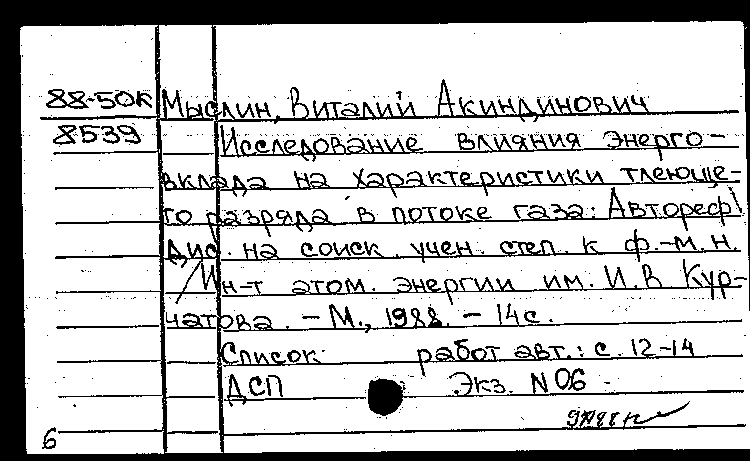 88-50К Мыслин, Виталий Акиндинович
8539 Исследование влияния энерго-
вклада на характеристики тлеюще-
го разряда в потоке газа: Автореф\
Дис. на соиск. учен. степ. к ф.-м. н.
/Ин-т атом. энергии им. И.В Кур-
чатова. - М., 1988. - 14с.
Список работ авт.: с. 12-14
ДСП Экз. N 06 -
6